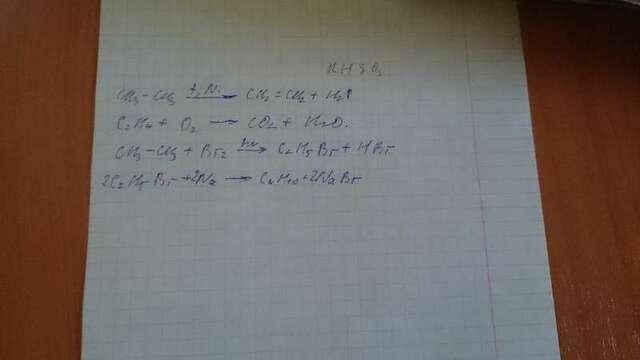 CH3-CH3 t,Ni → CH2=CH2 + H2↑
C2H4 + O2 → CO2 + H2O.
CH3-CH3 + Br2 hν → C2H5Br + HBr
2C2H5Br + 2Na → C4H10 + 2NaBr